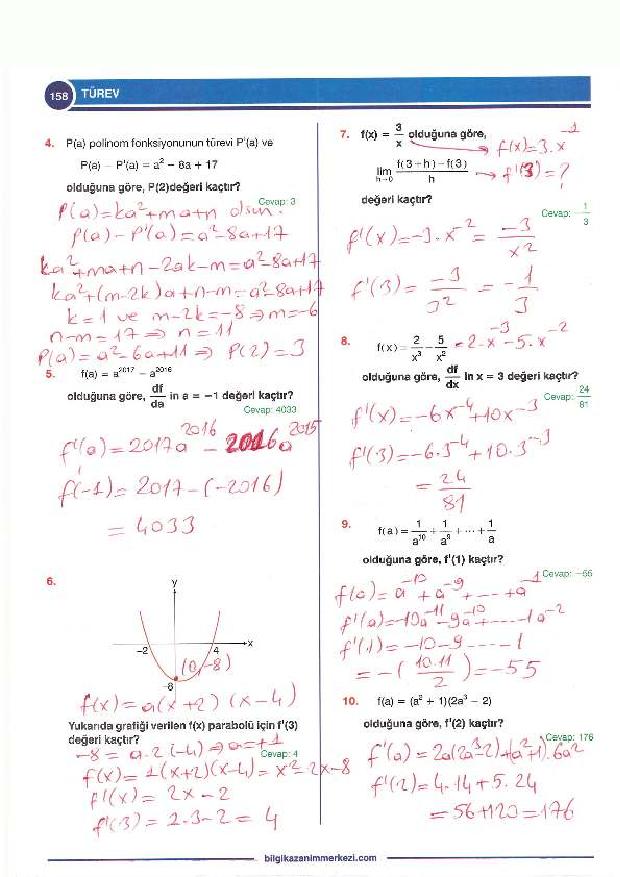 158 TÜREV
4. P(a) polinom fonksiyonunun türevi P'(a) ve
P(a) – P'(a) = a² – 8a + 17
olduğuna göre, P(2)değeri kaçtır?
Cevap: 3
P(a)=ka²+ma+n olsun.
P(a)-P'(a)=a²-8a+17
ka²+ma+n-2ak-m=a²-8a+17
ka²+(m-2k)a+n-m=a²-8a+17
k=1 ve m-2k=-8⇒m=-6
n-m=17⇒n=11
P(a)=a²-6a+11⇒P(2)=3
5. f(a) = a²⁰¹⁷ – a²⁰¹⁶
olduğuna göre, df/da in a = –1 değeri kaçtır?
Cevap: 4033
f'(a)=2017a²⁰¹⁶-2016a²⁰¹⁵
f(-1)=2017-(-2016)
=4033
6.
y
x
–2
4
(0,-8)
–8
f(x)=a(x+2)(x-4)
Yukarıda grafiği verilen f(x) parabolü için f'(3)
değeri kaçtır?
Cevap: 4
-8=a.2(-4)⇒a=+1
f(x)=1(x+2)(x-4)=x²-2x-8
f'(x)=2x-2
f'(3)=2.3-2=4
7. f(x) = 3/x olduğuna göre,
f(x)=3.x⁻¹
lim h→0 f(3+h)–f(3)/h
f'(3)=?
değeri kaçtır?
Cevap: –1/3
f'(x)=-3.x⁻²=-3/x²
f'(3)=-3/3²=-1/3
8. f(x)= 2/x³ – 5/x²
=2.x⁻³-5.x⁻²
olduğuna göre, df/dx in x = 3 değeri kaçtır?
Cevap: 24/81
f'(x)=-6x⁻⁴+10x⁻³
f'(3)=-6.3⁻⁴+10.3⁻³
=24/81
9. f(a)= 1/a¹⁰ + 1/a⁹ + ··· + 1/a
olduğuna göre, f'(1) kaçtır?
Cevap: –55
f(a)=a⁻¹⁰+a⁻⁹+----+a⁻¹
f'(a)=-10a⁻¹¹-9a⁻¹⁰+-----1a⁻²
f'(1)=-10-9-----1
=-(10.11/2)=-55
10. f(a) = (a² + 1)(2a³ – 2)
olduğuna göre, f'(2) kaçtır?
Cevap: 176
f'(a)=2a(2a³-2)+(a²+1).6a²
f'(2)=4.14+5.24
=56+120=176
bilgikazanimmerkezi.com